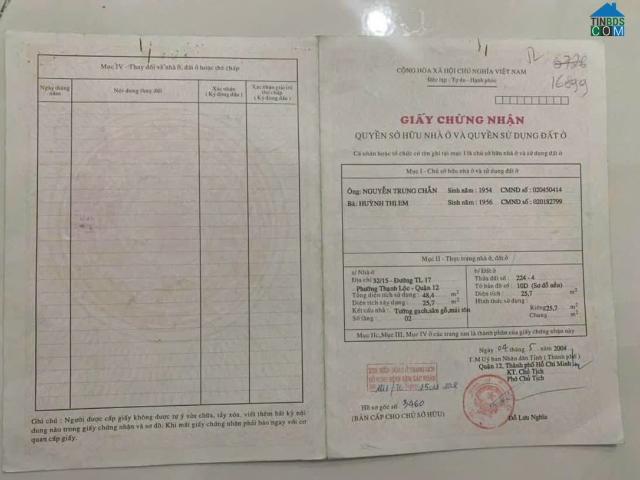 TINBDS
COM
Mục IV - Thay đổi về nhà ở, đất ở hoặc thế chấp
Ngày tháng năm
Nội dung thay đổi
Xác nhận (Ký đóng dấu)
Xác nhận giải trừ thế chấp (Ký đóng dấu)
Ghi chú : Người được cấp giấy không được tự ý sửa chữa, tẩy xóa, viết thêm bất kỳ nội
dung nào trong giấy chứng nhận và sơ đồ. Khi mất giấy chứng nhận phải báo ngay với cơ
quan cấp giấy.
16899
CỘNG HÒA XÃ HỘI CHỦ NGHĨA VIỆT NAM
Độc lập - Tự do - Hạnh phúc
GIẤY CHỨNG NHẬN
QUYỀN SỞ HỮU NHÀ Ở VÀ QUYỀN SỬ DỤNG ĐẤT Ở
Cá nhân hoặc tổ chức có tên ghi tại mục I là chủ sở hữu nhà ở và sử dụng đất ở
Mục I - Chủ sở hữu nhà ở và sử dụng đất ở
Ông: NGUYỄN TRUNG CHẮN Sinh năm : 1954 CMND số : 020450414
Bà: HUỲNH THỊ EM Sinh năm : 1956 CMND số : 020182799
Mục II - Thực trạng nhà ở, đất ở
a/ Nhà ở
Địa chỉ 32/15 - Đường TL 17
- Phường Thạnh Lộc - Quận 12
Tổng diện tích sử dụng : 48,4 m2
Diện tích xây dựng : 25,7 m2
Kết cấu nhà : Tường gạch, sàn gỗ, mái tôn
Số tầng : 02
b/ Đất ở
Thửa đất số : 224 - 4
Tờ bản đồ số : 10D (Sơ đồ nền)
Diện tích : 25,7 m2
Hình thức sử dụng :
Riêng 25,7 m2
Chung m2
Mục IIc, Mục III, Mục IV ở các trang sau là thành phần của giấy chứng nhận này
Ngày 04 tháng 5 năm 2004
T.M Uỷ ban Nhân dân Tỉnh ( Thành phố )
Quận 12, Thành phố Hồ Chí Minh
KT. Chủ Tịch
Phó Chủ Tịch
Hồ sơ gốc số 3460
(BẢN CẤP CHO CHỦ SỞ HỮU)
Đỗ Lưu Nghĩa